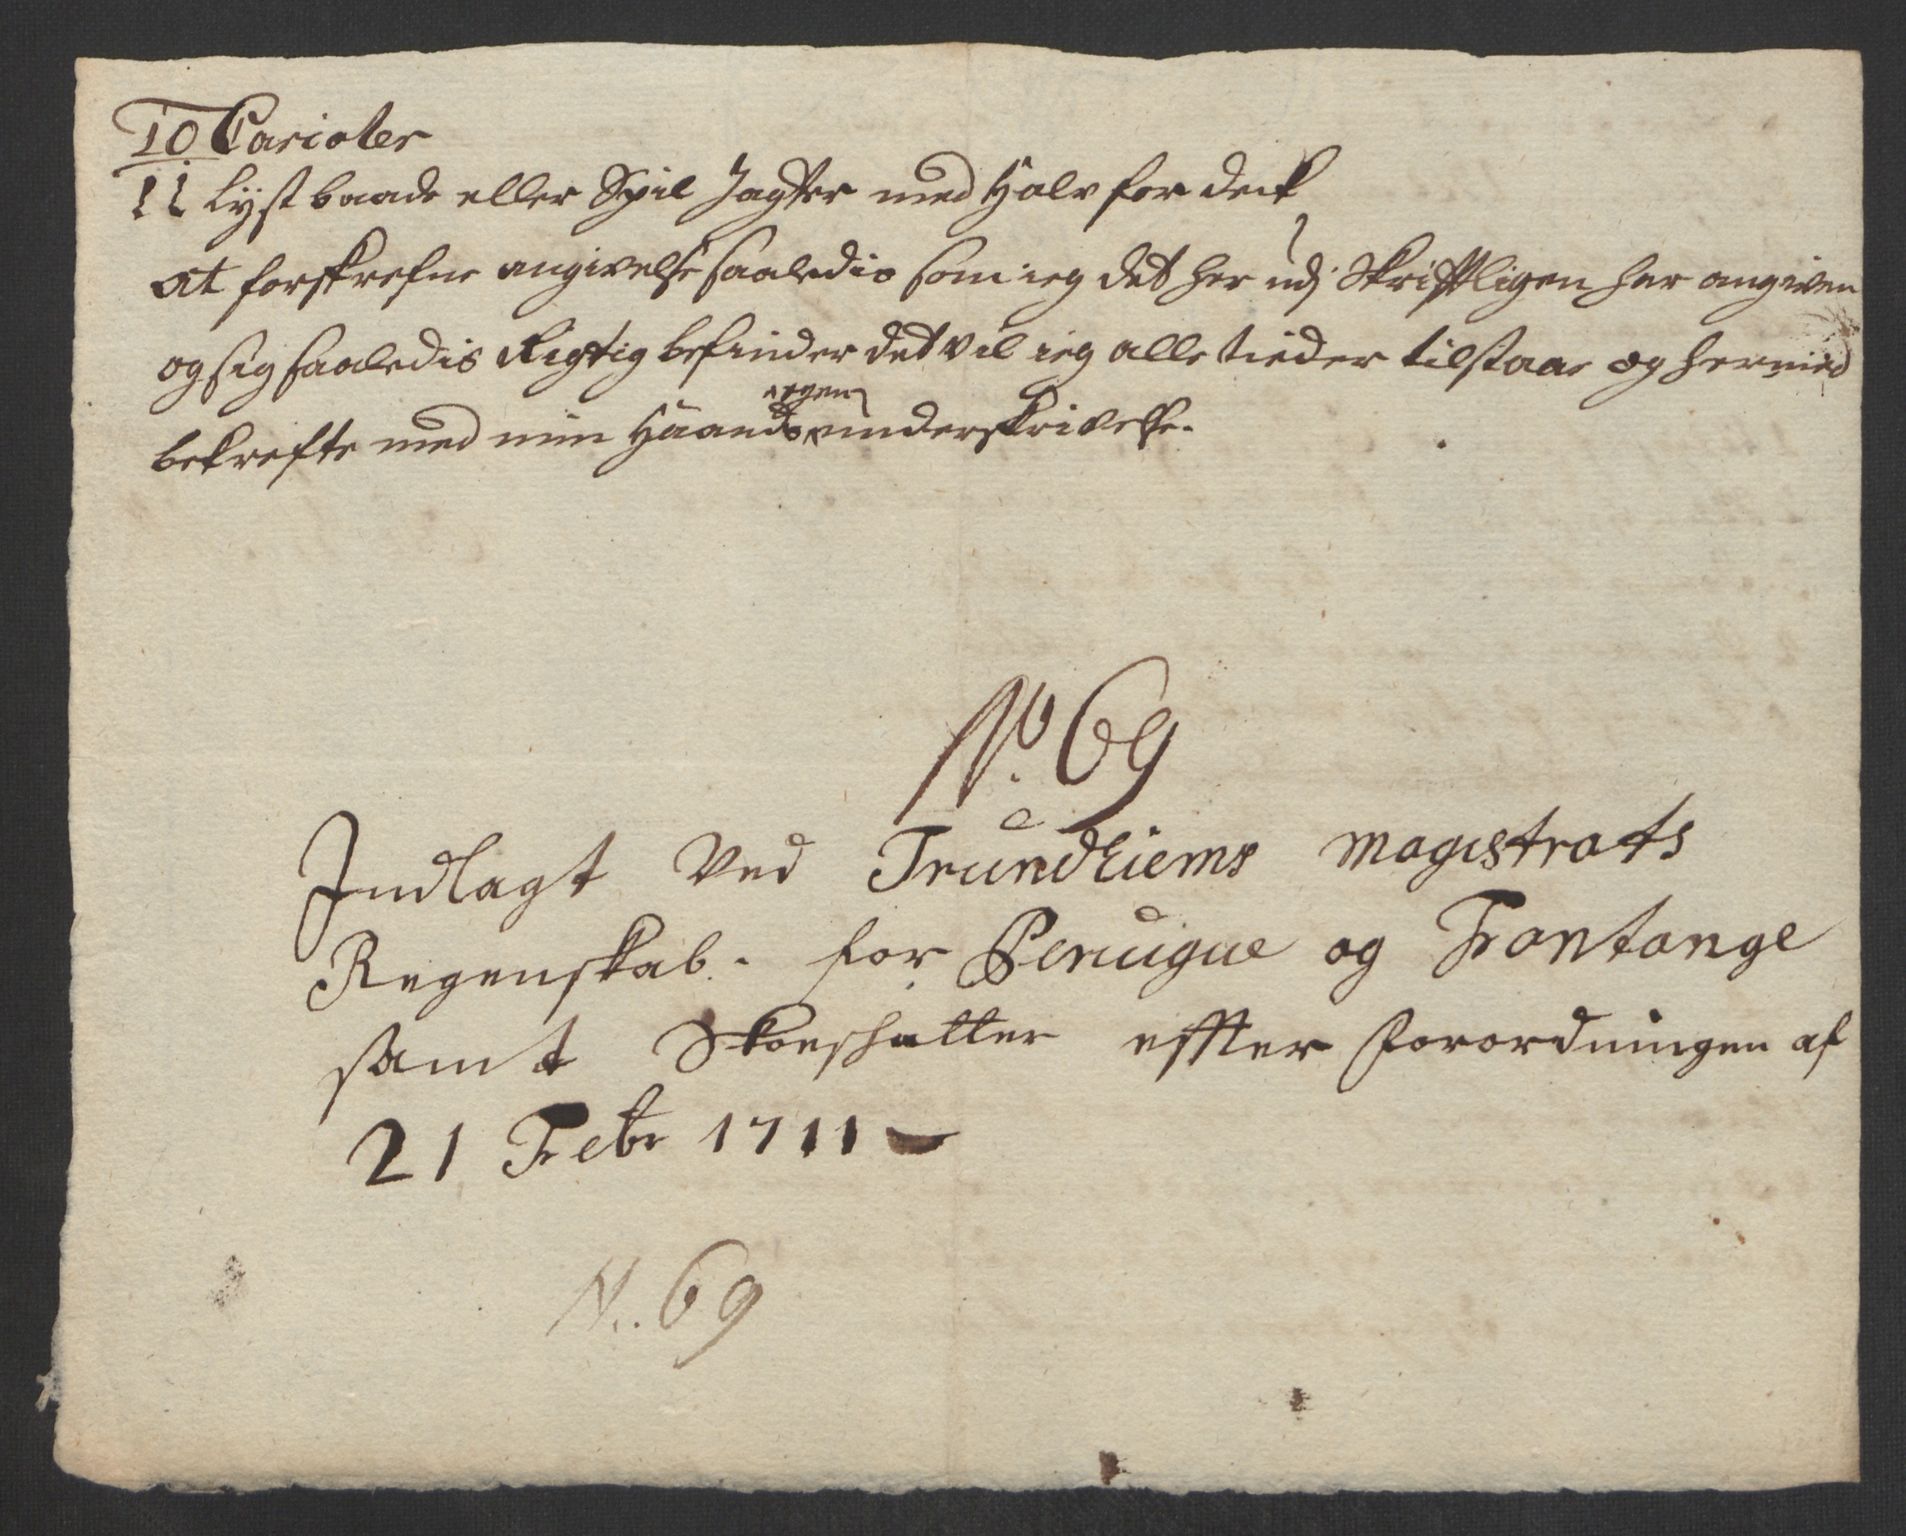 10 Carioler
11 Lystbaade eller Spil Jagter med Halv for deck
at forskrefne angivelse saaledis som ieg det her udj Skrifftligen har angiven
og sig saaledis Rigtig befinder det vil ieg alle tieder tilstaae og hermed
bekrefte med min Haands egen underskrivelse.
No. 69
Indlagt Ved Trundhiems Magistrats
Regenskab. for Peruque og Frontange
samt Skoeschatter effter Forordningen af
21 Febr 1711
N. 69